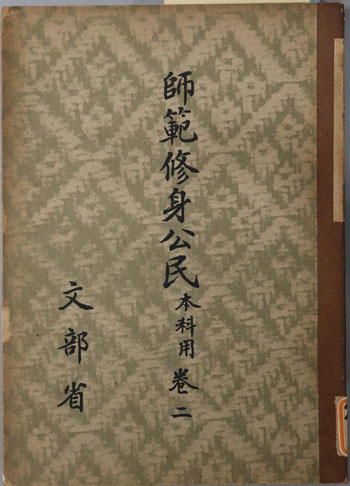 師範修身公民本科用卷二
文部省